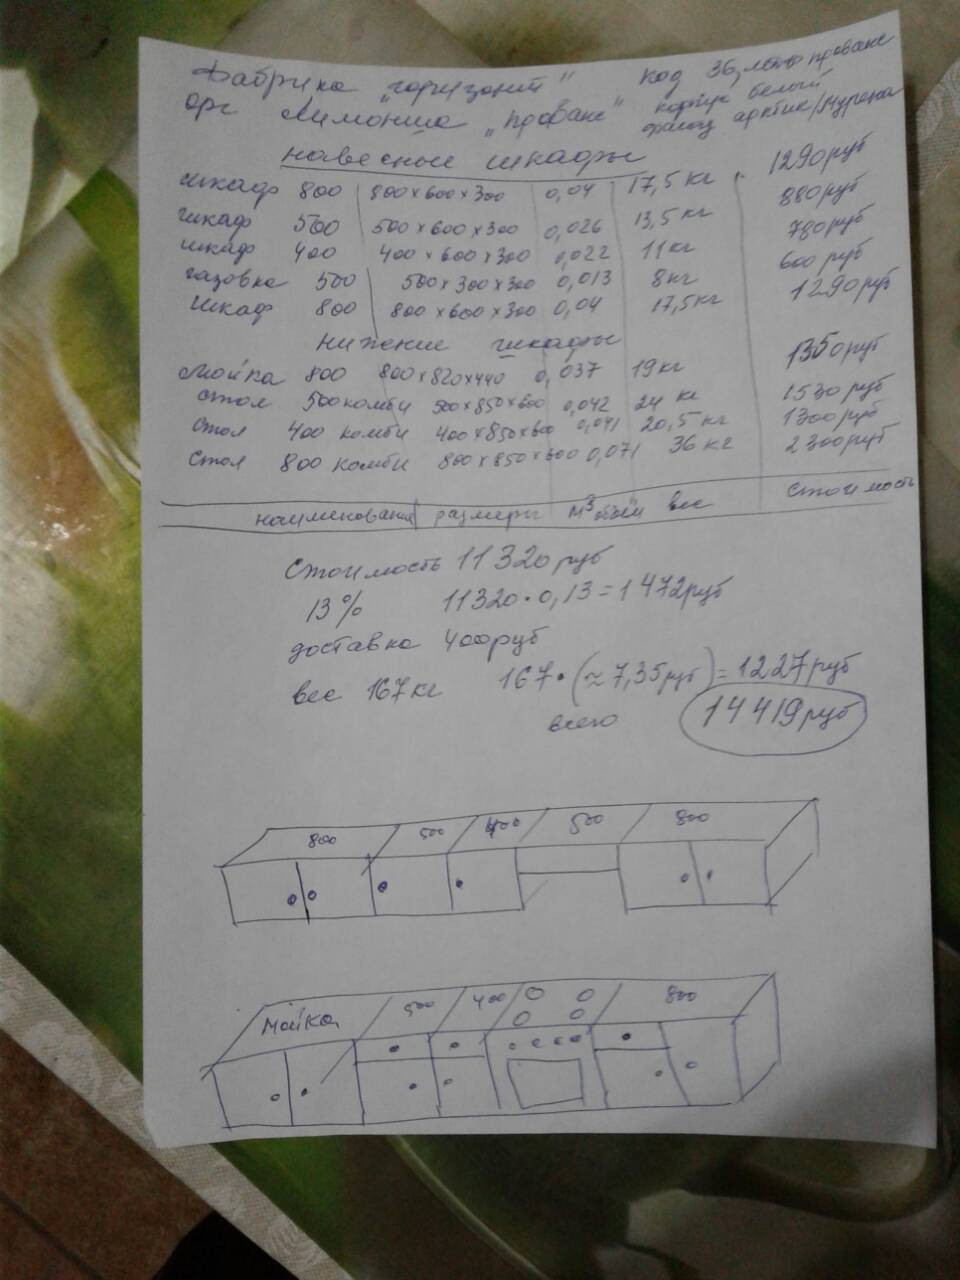 Фабрика "горизонт" код 36,
орг Лимонша "прованс" корпус белый
фасад арктик/
навесные шкафы
шкаф 800 800×600×300 0,04 17,5 кг 1290руб
шкаф 500 500×600×300 0,026 13,5кг 880руб
шкаф 400 400×600×300 0,022 11кг 780руб
газовка 500 500×300×300 0,013 8кг 600 руб
шкаф 800 800×600×300 0,04 17,5кг 1290руб
нижение шкафы
Мойка 800 800×820×440 0,037 19кг 1350руб
стол 500комби 500×850×600 0,042 24 кг 1530руб
стол 400 комби 400×850×600 0,041 20,5кг 1300руб
стол 800 комби 800×850×600 0,071 36 кг 2300руб
наименования размеры м³ объём вес стоимость
Стоимость 11320руб
13% 11320·0,13=1472руб
доставка 400руб
вес 167кг 167·(≈7,35руб)=1227руб
всего 14419руб
800 500 400 500 800
Мойка 500 400 800